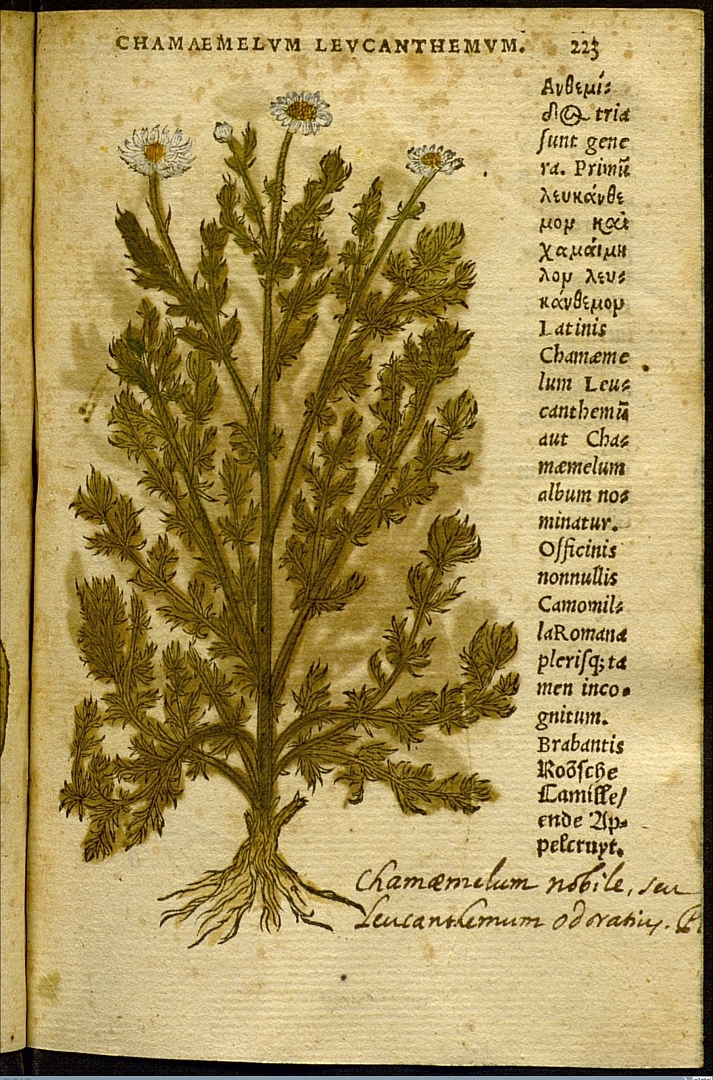 CHAMAEMELVM LEVCANTHEMVM. 223
Ανθεμί⸗
δ@ tria
ſunt gene
ra. Primū
λευκάνθε
μορ καὶ
χαμαίμη
λορ λευ⸗
κάνθεμορ
Latinis
Chamæme
lum Leu⸗
canthemū
aut Cha⸗
mæmelum
album no⸗
minatur.
Officinis
nonnullis
Camomil⸗
laRomana
pleriſq;ta
men inco⸗
gnitum.
Brabantis
Roōſche
Camille/
ende Ap⸗
pelcruyt.
Chamæmelum nobile, seu
Leucanthemum odoratius.